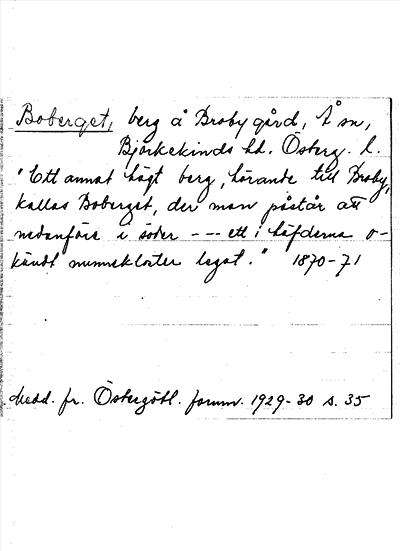 Boberget, berg å Broby gård, Å sn,
Björkekinds hd. Österg. l.
"Ett annat högt berg, hörande till Broby,
kallas Boberget, der man påstår att
nedanföre i söder --- ett i häfderna o-
kändt nunnekloster legat." 1870-71
Medd. fr. Östergötl. fornm. 1929-30 s. 35